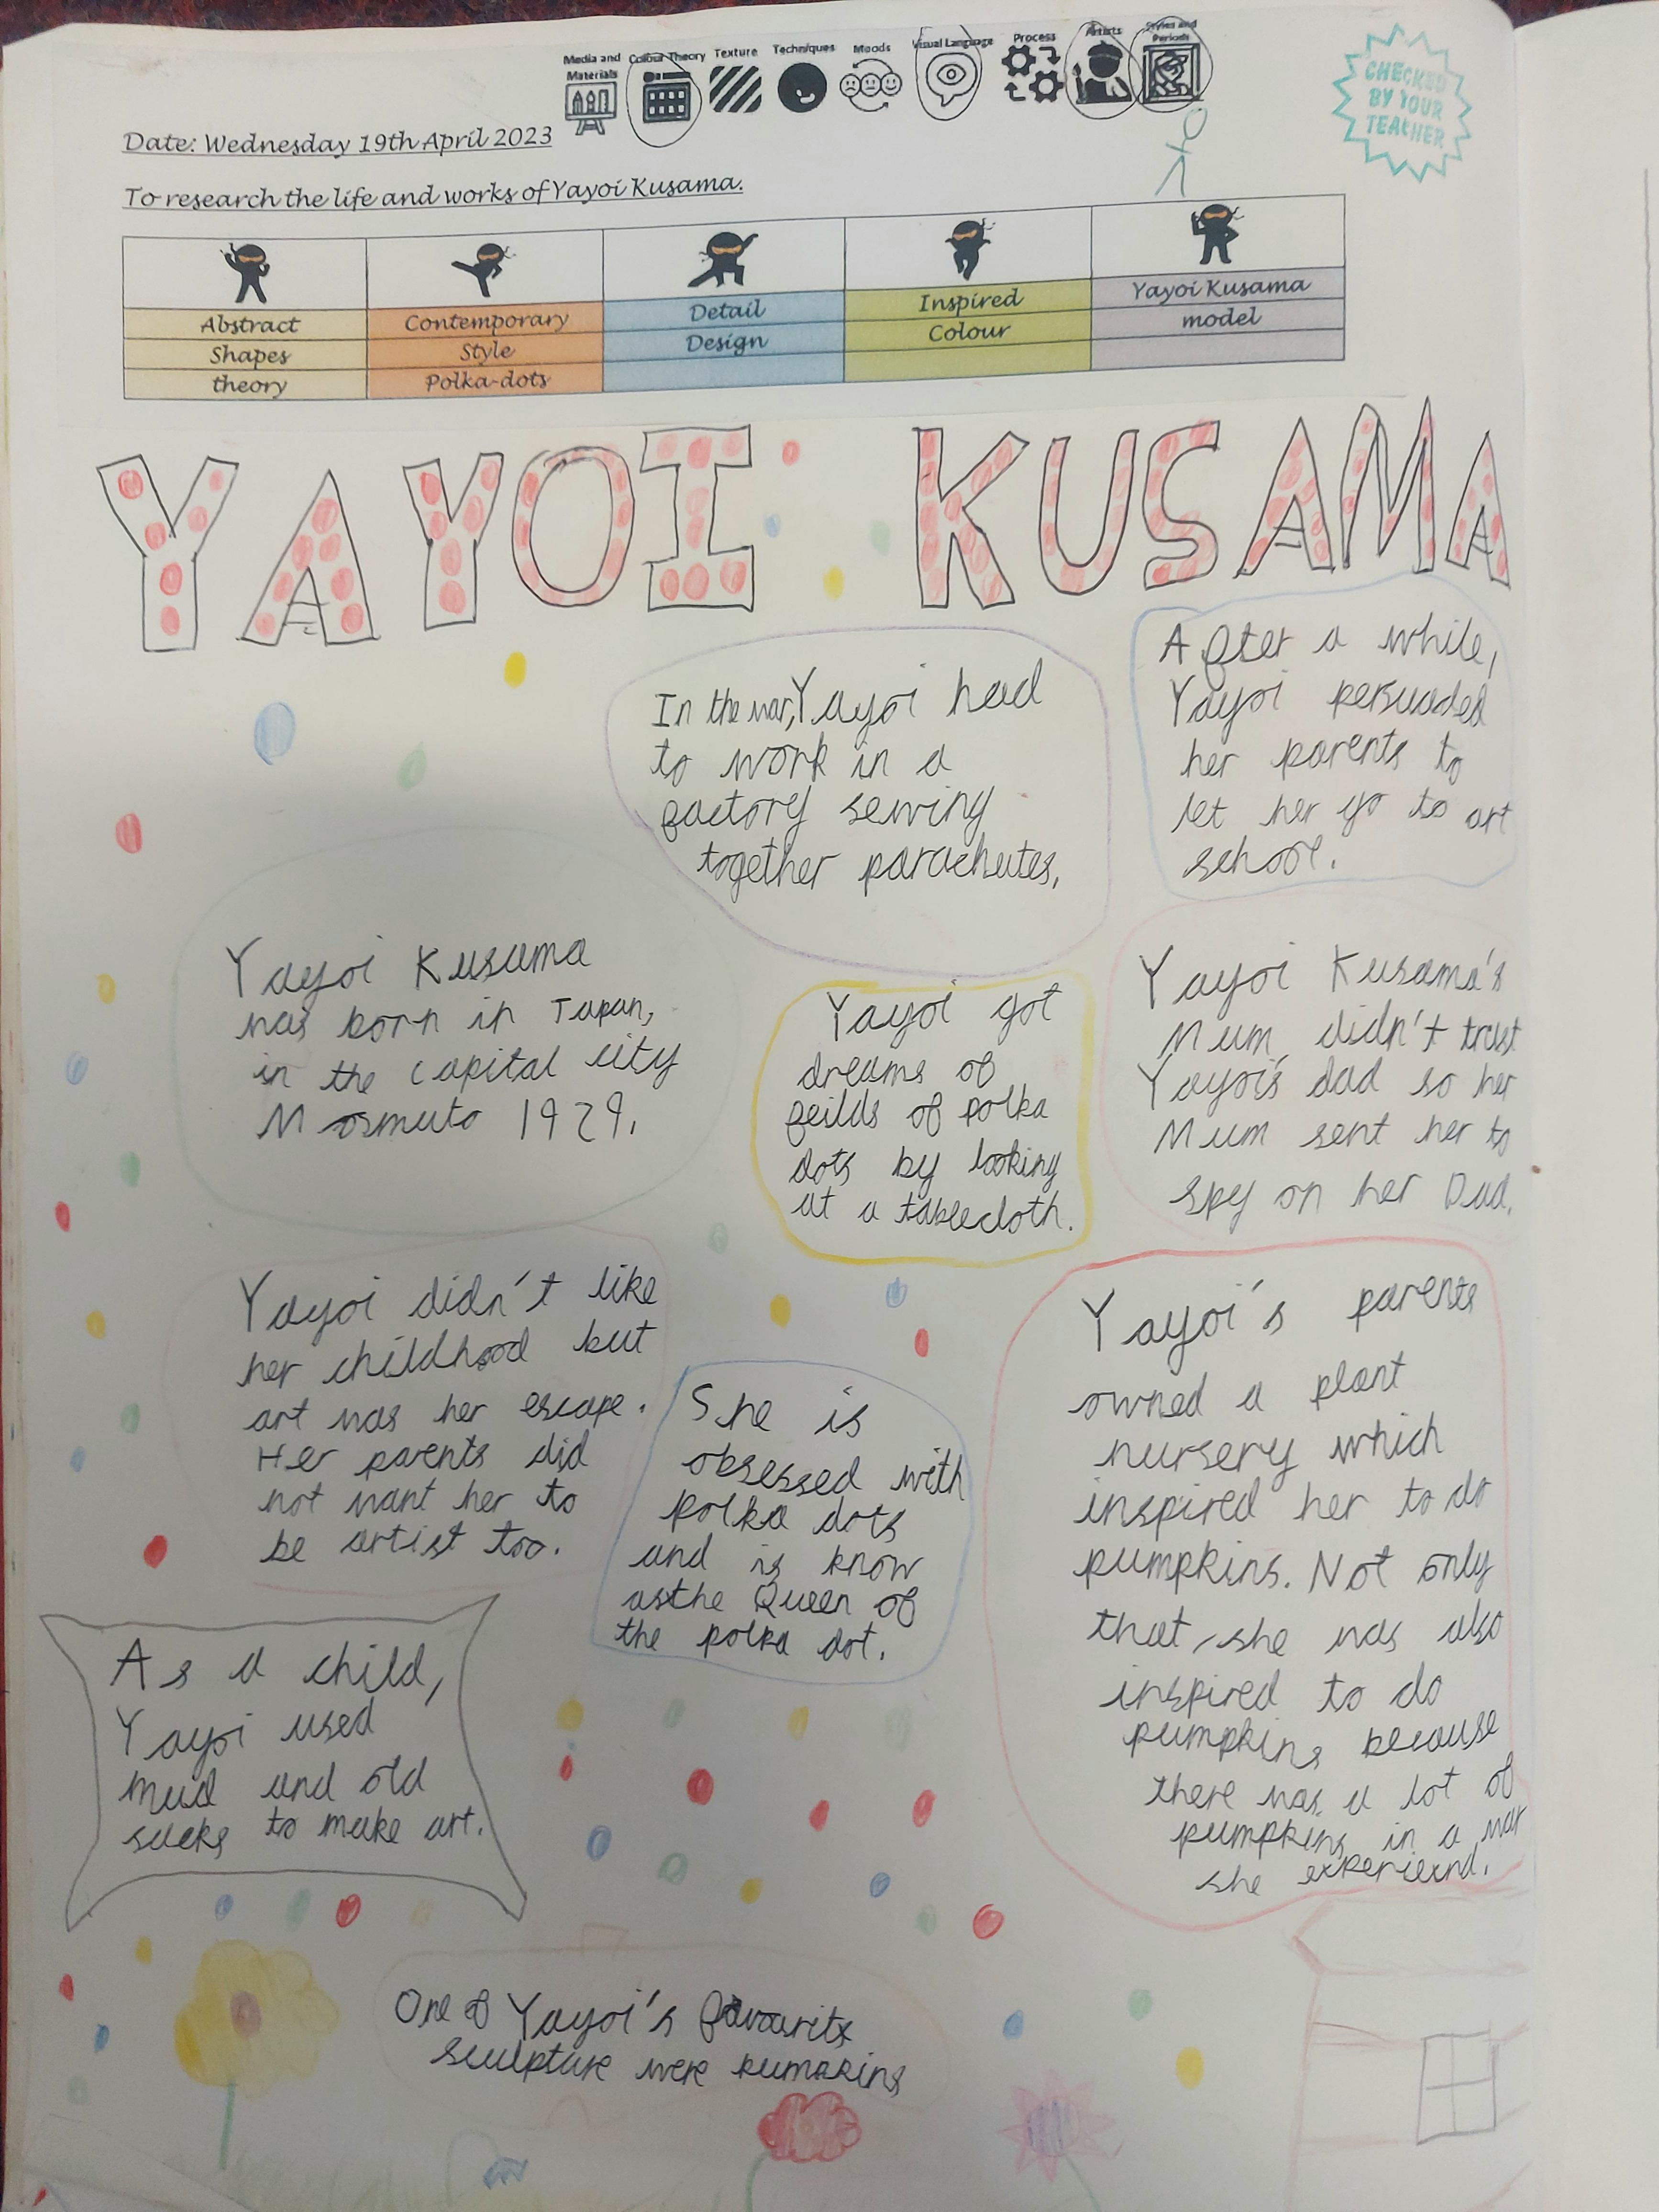 Media and Materials
Colour Theory
Texture
Techniques
Moods
Visual Language
Process
Artists
Styles and Periods
CHECKED
BY YOUR
TEACHER
Date: Wednesday 19th April 2023
To research the life and works of Yayoi Kusama.
Abstract
Shapes
theory
Contemporary
Style
Polka-dots
Detail
Design
Inspired
Colour
Yayoi Kusama
model
YAYOI KUSAMA
In the war, Yayoi had
to work in a
factory sewing
together parachutes.
After a while,
Yayoi persuaded
her parents to
let her go to art
school.
Yayoi Kusama
was born in Japan,
in the capital city
Mosmuto 1929.
Yayoi got
dreams of
feilds of polka
dots by looking
at a tablecloth.
Yayoi Kusama's
Mum didn't trust
Yayoi's dad so her
Mum sent her to
spy on her Dad.
Yayoi didn't like
her childhood but
art was her escape.
Her parents did
not want her to
be artist too.
She is
obsessed with
polka dots
and is know
as the Queen of
the polka dot.
Yayoi's parents
owned a plant
nursery which
inspired her to do
pumpkins. Not only
that, she was also
inspired to do
pumpkins because
there was a lot of
pumpkins in a war
she
As a child,
Yayoi used
mud and old
sacks to make art.
One of Yayoi's favourite
sculpture were pumpkins